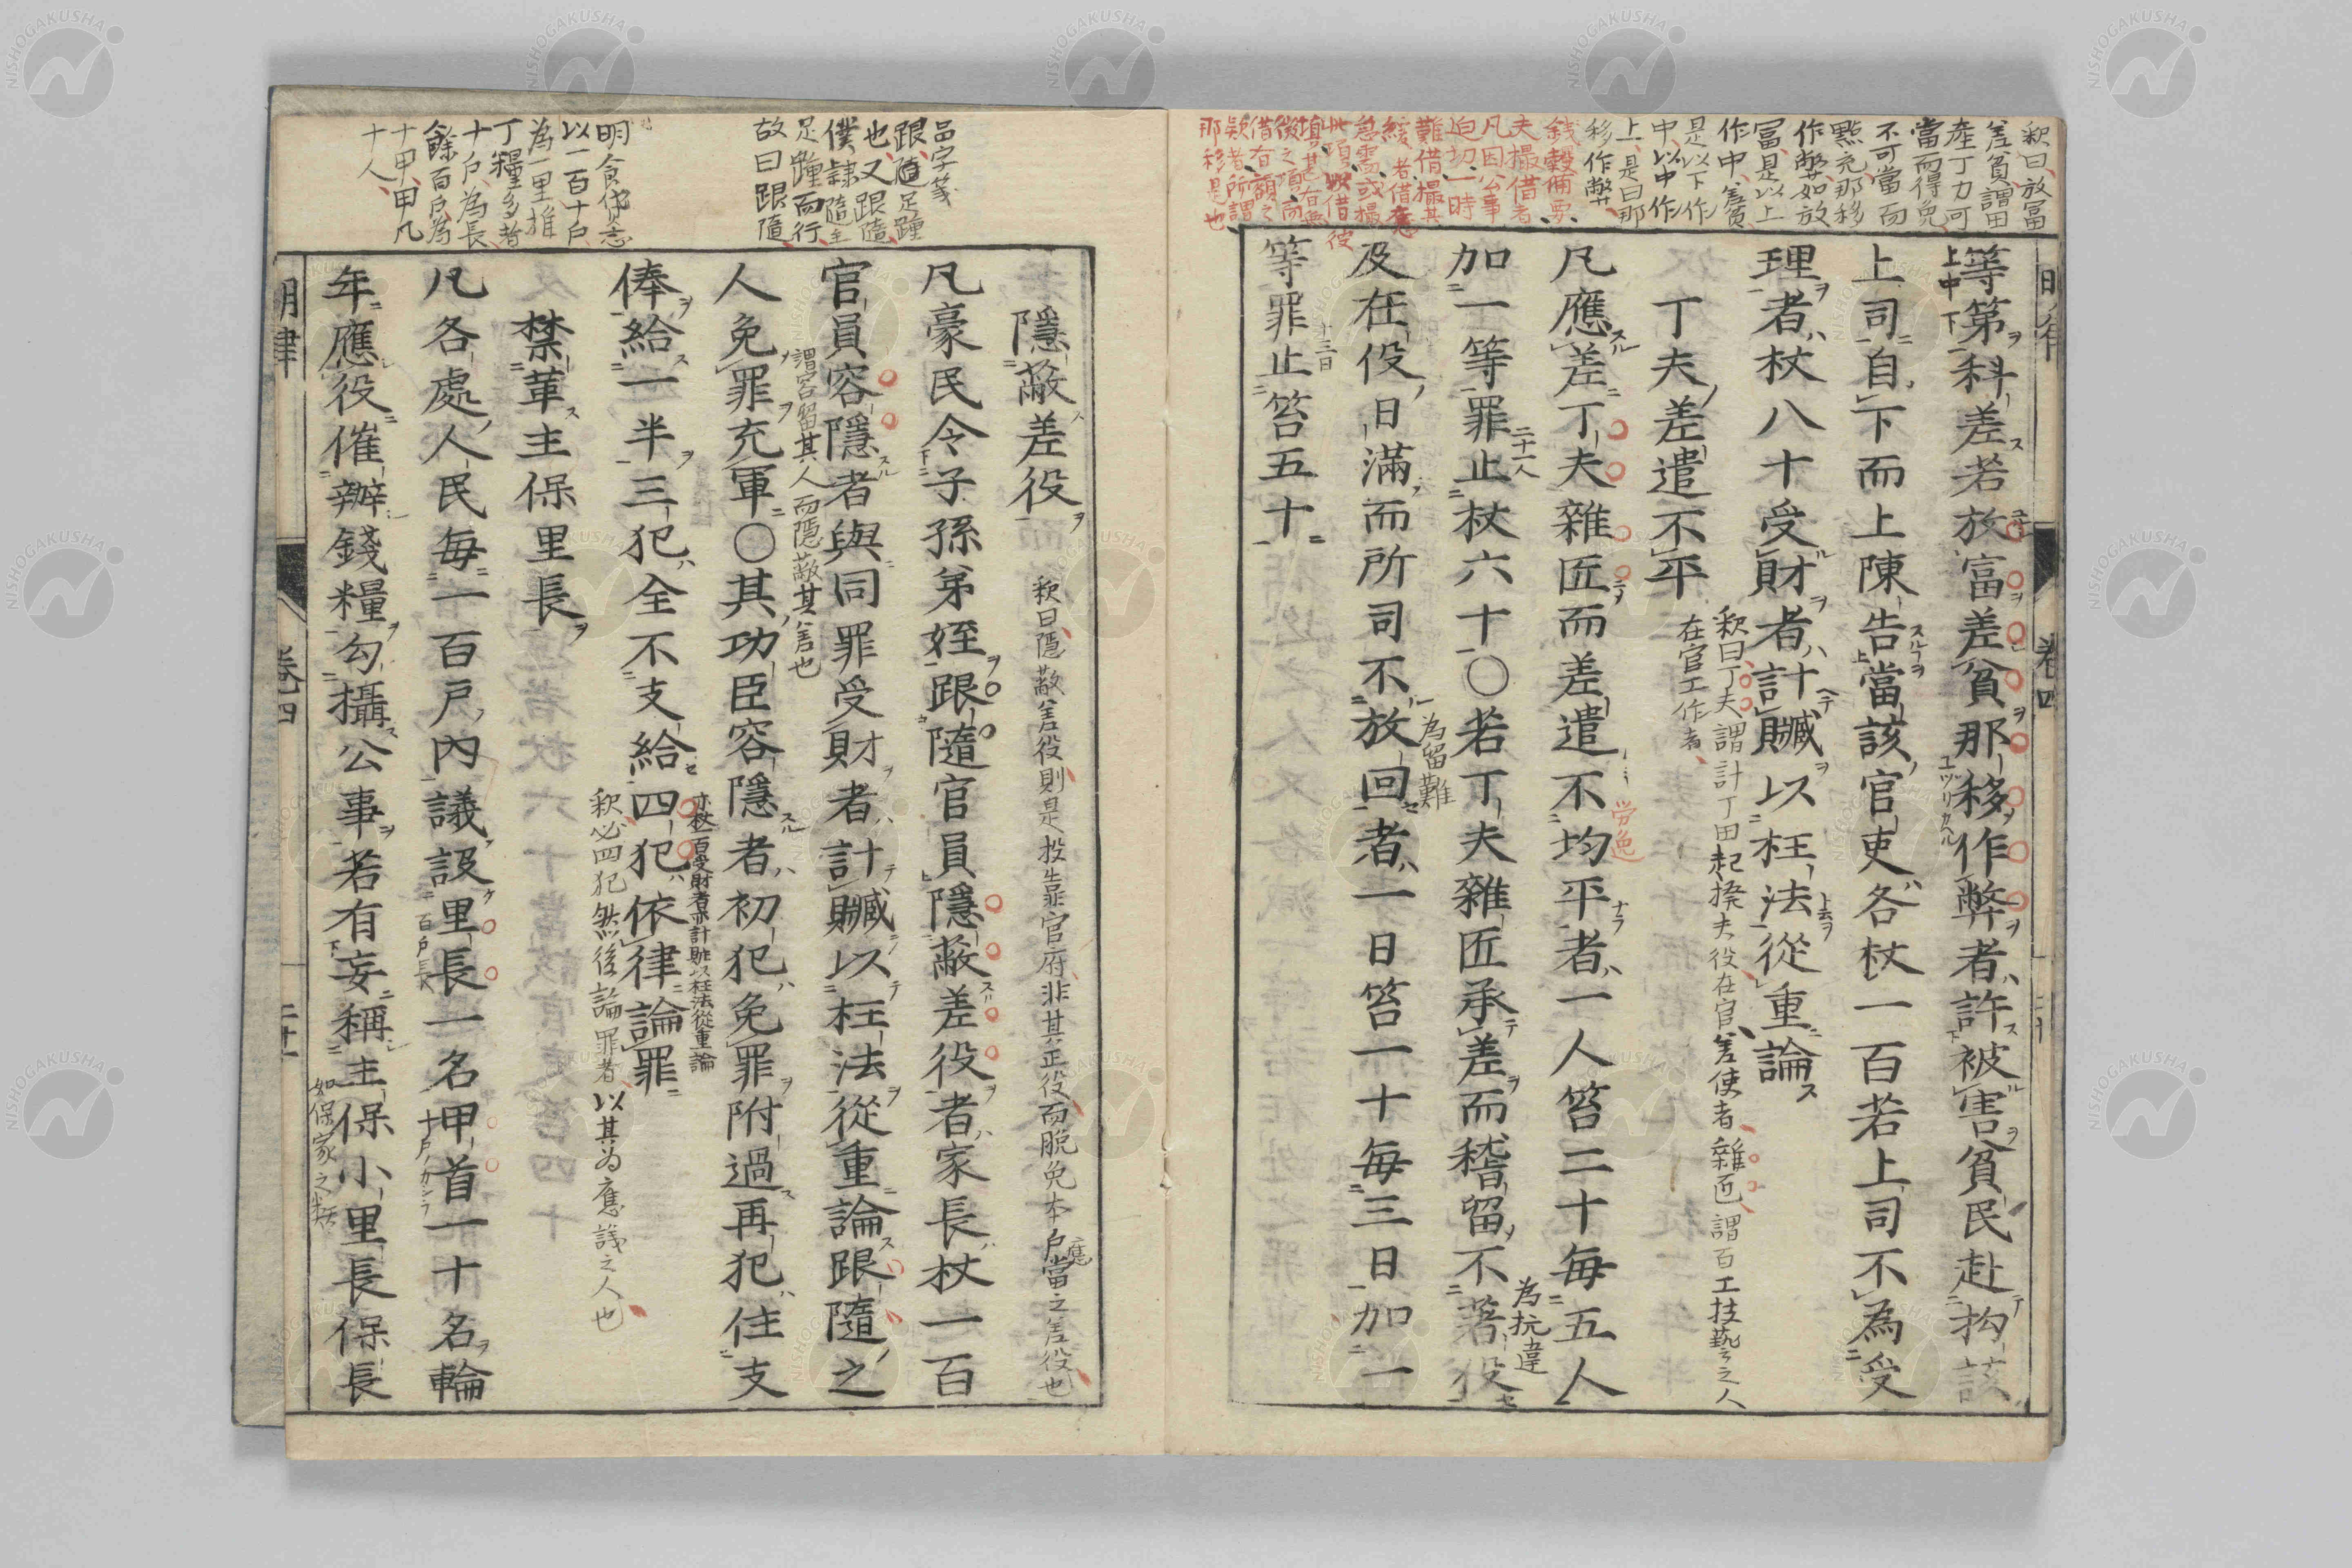 釈曰、放冨
差貧謂田
産丁力可
當而得免、
不可當而
點充、那移
作弊、如放
冨是以上
作中、差貧
是以下作
中、以中作
上、是曰那
移作弊、
錢穀備要、
夫撮借者
凡因公事
迫切、一時
難借撮其
緩者借應
急需或撮
此項以借彼
那移是也、
等第科差若放富差貧那移作弊者許被害貧民赴拘該
上中下
ユヅリカヘル
上司自下而上陳告當該官吏各杖一百若上司不為受
理者杖八十受財者計贓以枉法從重論
丁夫差遣不平
釈曰、丁夫謂計丁田起撥夫役在官差使者、雜匠、謂百工技藝之人
在官工作者、
凡應差丁夫雜匠而差遣不均平者一人笞二十每五人
労逸
加一等罪止杖六十〇若丁夫雜匠承差而稽留不著役
二十一人
為抗違
及在役日滿而所司不放回者一日笞一十每三日加一
為留難
等罪止笞五十
十三日
明律
卷四
邑字箋
跟、隨足踵
也、又跟隨
僕隷隨主
足踵而行、
故曰跟隨、
明食貨志
以一百十戸
為一里推
丁糧多者
十戸、為長、
餘百戸為
十甲、甲凡
十人、
隱蔽差役
釈曰隱蔽差役則是投靠官府非其正役而脱免本戸應當之差役也
凡豪民令子孫弟姪跟隨官員隱蔽差役者家長杖一百
官員容隱者與同罪受財者計贓以枉法從重論跟隨之
謂容留其人而隱蔽其差也
人免罪充軍〇其功臣容隱者初犯免罪附過再犯住支
亦杖一百受財者亦計贓以枉法從重論
俸給一半三犯全不支給四犯依律論罪
釈必四犯然後論罪者、以其為應議之人也
禁革主保里長
凡各處人民每一百戸內議設里長一名甲首一十名輪
百戸長
年應役催辦錢糧勾攝公事若有妄稱主保小里長保長
如保家之類
明律
卷四